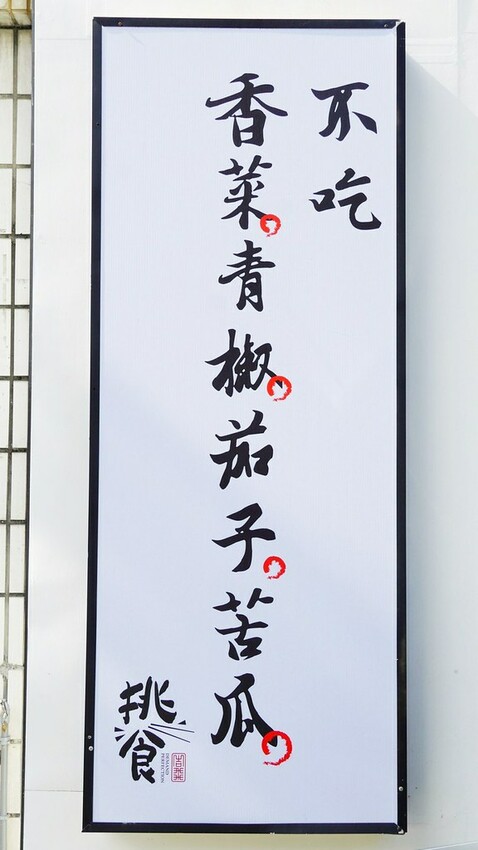 不吃
香菜青椒茄子苦瓜
挑食
DEMAND
PERFECTION